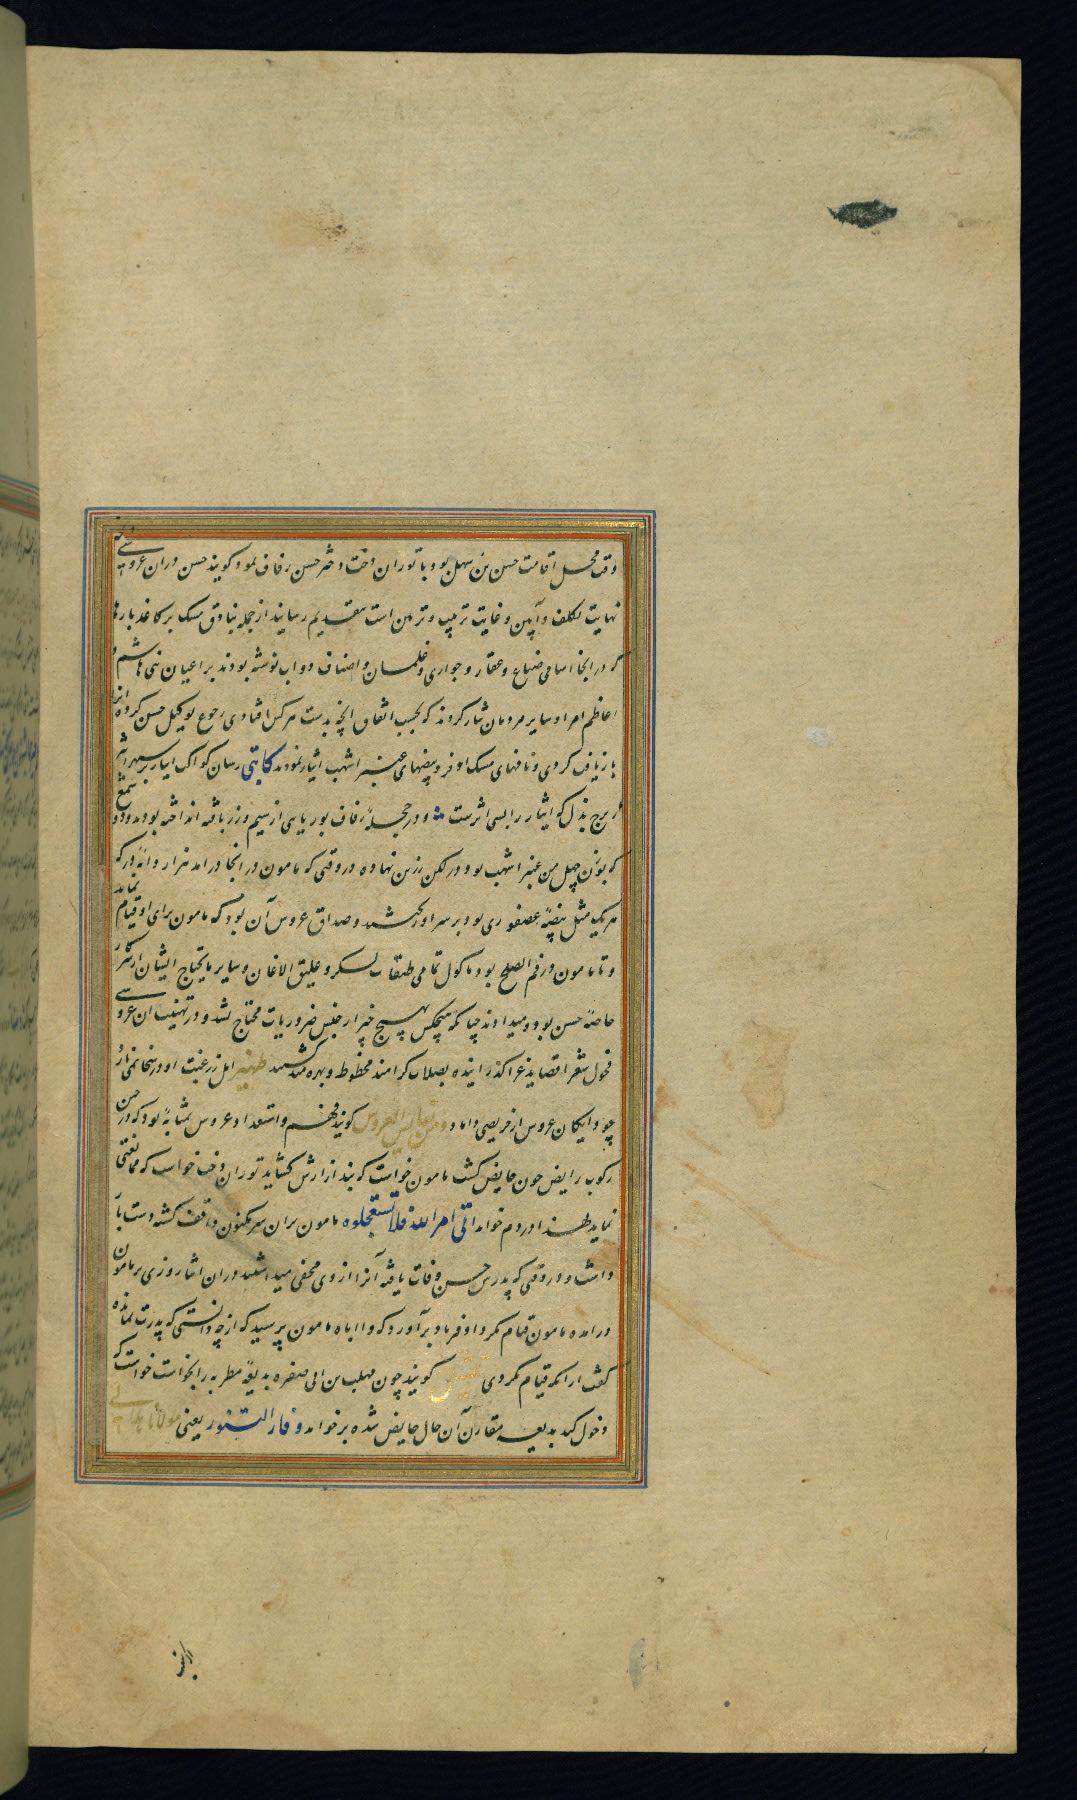 وقت محل اقامت حسن بن سهل بود با توران دخت دختر حسن زفاف نمود گویند حسن در ان عروسی
نهایت تکلف و آیین و غایت ترتیب و تزیین است بتقدیم رسانید از جمله بنادق مسک بر کاغذ پارها
که در انجا اسامی ضیاع و عقار و جواری و غلمان و اصناف دواب نوشته بودند بر اعیان بنی هاشم و
اعاظم امرا و سایر مردمان نثار کردند که بحسب اتفاق انچه بدست هر کس افتادی رجوع بوکیل حسن کرده انرا
بازیافت کردی و نافهای مسک اوفر و بیضهای عنبر اشهب ایثار نمودند کاتبی رسان کواکب ایثار بر سپهر اثر
ز برج بذل که ایثار را بسی اثرست و در حجلهٔ زفاف بوریایی از سیم و زر بافته انداخته بودند و دو شمع
که بوزن چهل من عنبر اشهب بود در لکن زرین نهاده در وقتی که مامون در انجا درامد هزار دانه در که
هر یک مثل بیضهٔ عصفوری بود بر سر او و صداق عروس آن بود که مامون برای او قیام نماید
و تا مامون در فم الصلح بود ماکول تمامی طبقات لشکر و علیق الاغان و سایر مایحتاج ایشان از سرکار
خاصهٔ حسن بود و میدادند چنانکه هیچکس بهیچ چیز از جنس ضروریات محتاج نشد و در تهنیت ان عروسی
فحول شعرا قصاید غرا گذرانیده بصلات گرامند محظوظ و بهره مند کشتند ظهیر اهل ز رغبت او در سخا نمی نازد
چو دایکان عروس از حریصی داماد و من نفایس العروس گویند فهم و استعداد عروس بمثابهٔ بود که در حین
رکوب رایض چون حایض کشت مامون خواست که بند ازارش کشاید توران دخت خواست که ممانعتی
نماید او در دم خواند اتی امر الله فلا تستعجلوه مامون بران سر مکنون واقف کشته دست باز
داشت و در وقتی که پدرش حسن وفات یافته آنرا از وی مخفی میداشتند در ان اثنا روزی بر مامون
درامده مامون قیام نکرد او فریاد برآورد که وا اباه مامون پرسید که از چه دانستی که پدرت نمانده
گفت از انکه قیام نکردی گویند چون مهلب بن ابی صفره بدیعهٔ مطربه را بخواست خواست که
دخول کند بدیعه مقارن آن حال حایض شده برخواند و فار التنور یعنی مولانا